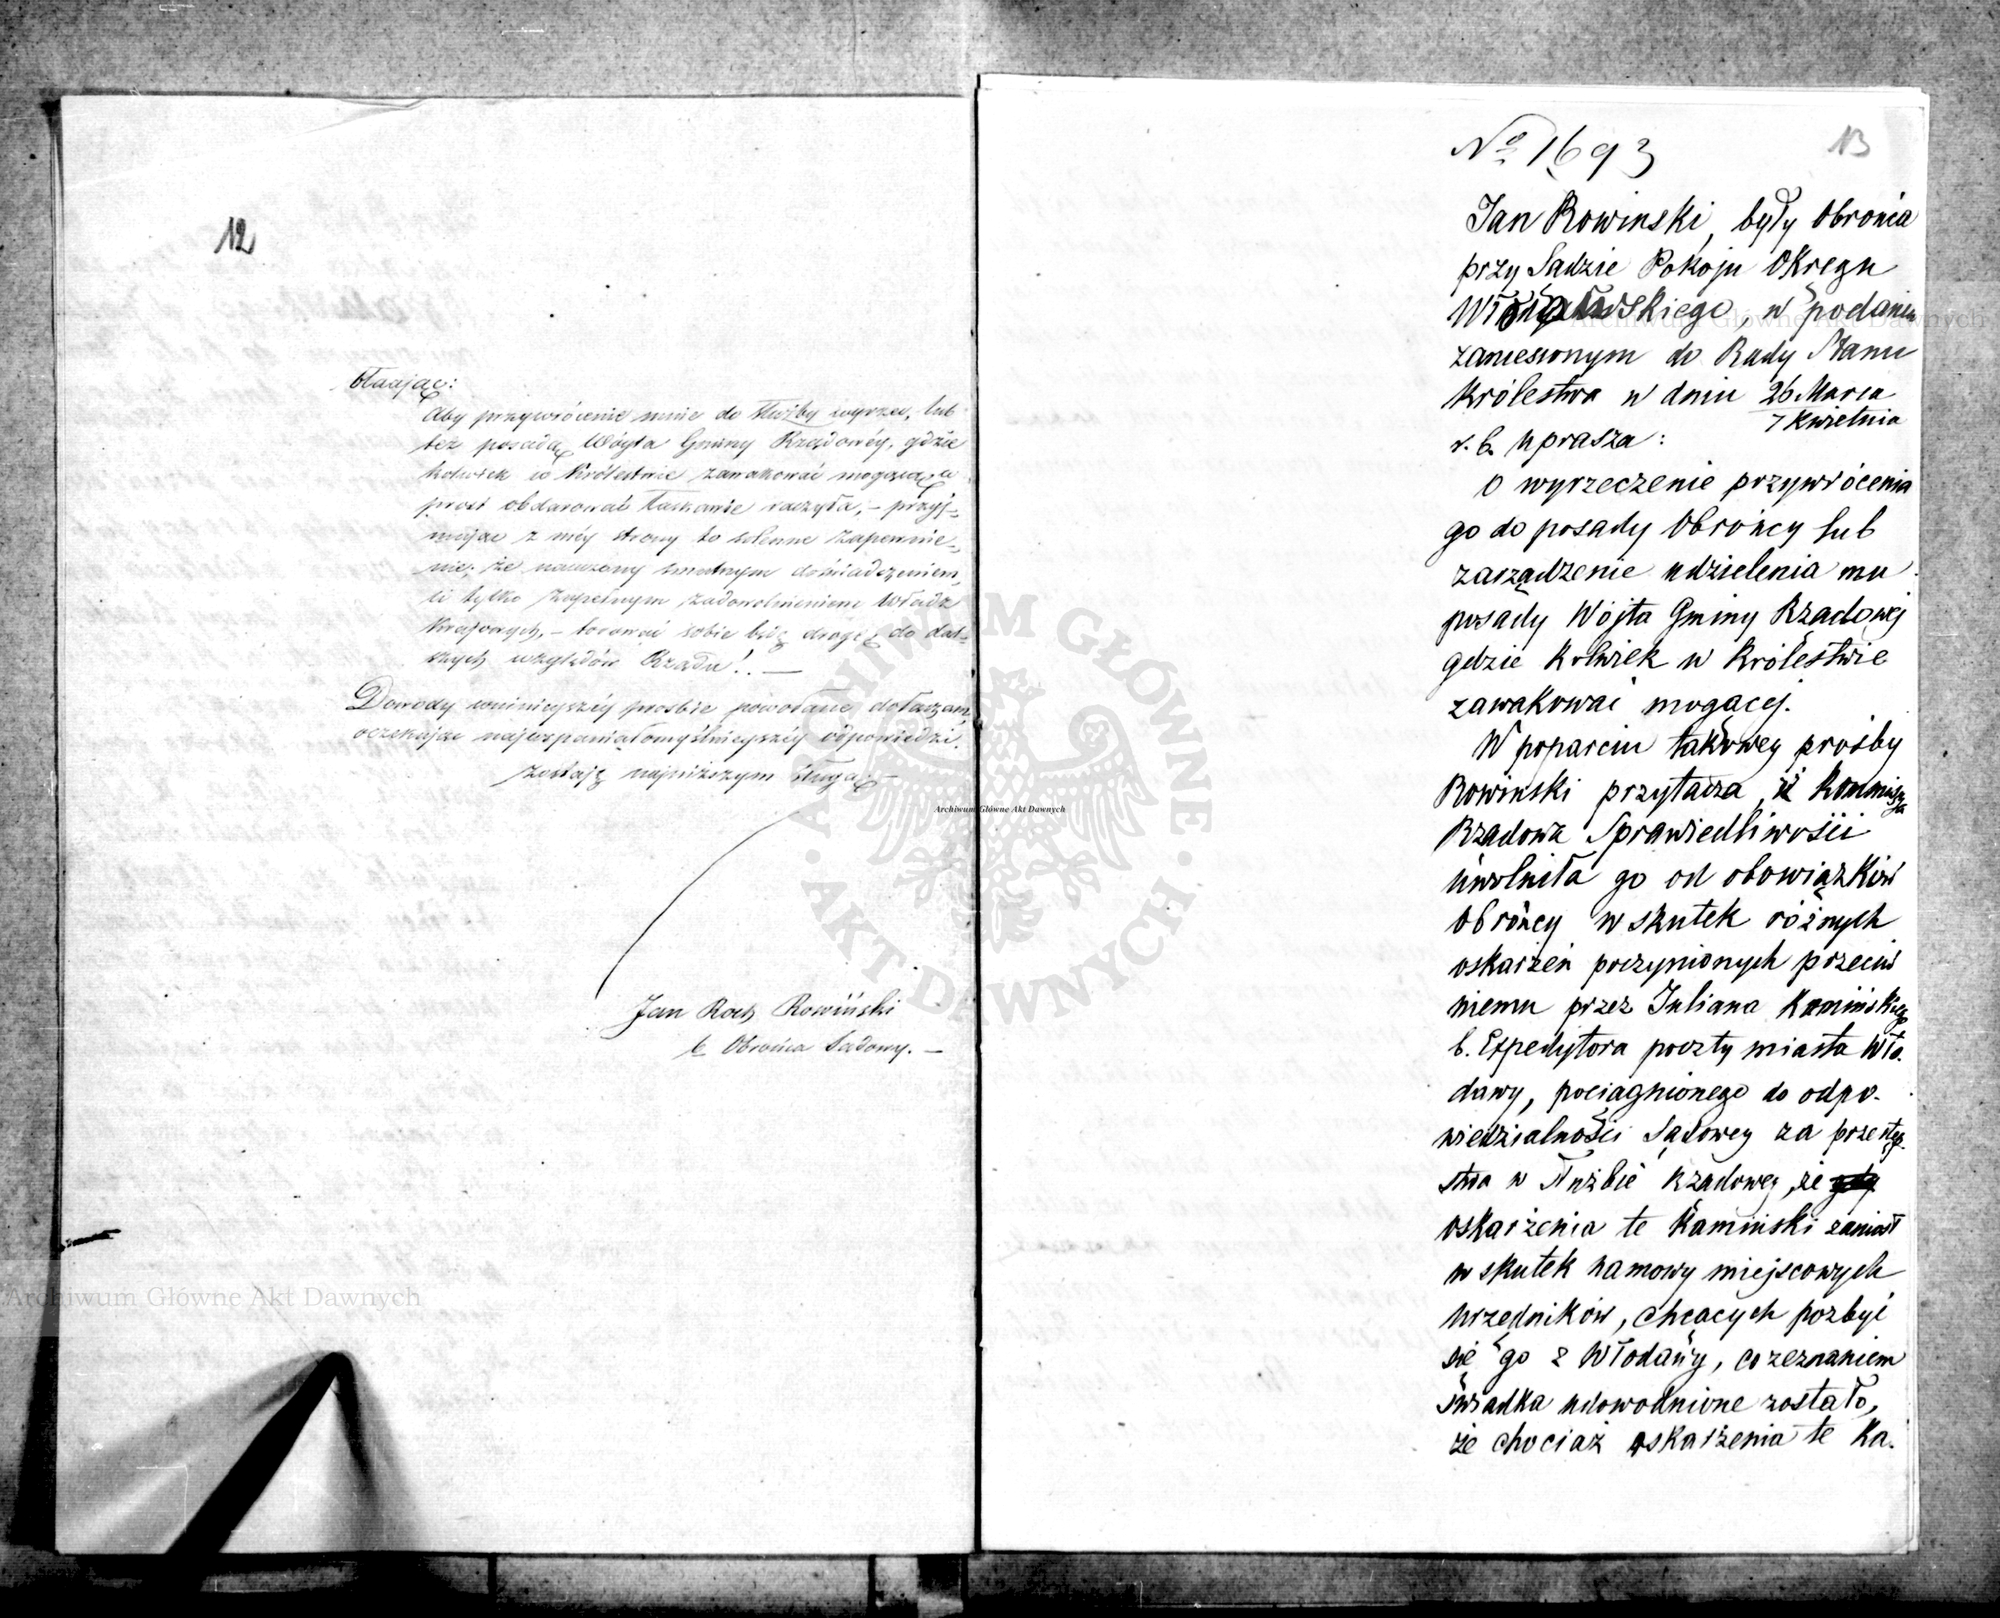 12
błagając:
Aby przywrócenie mnie do służby wyrzec, lub
też posadą Wójta Gminy Rządowéy, gdzie
kolwiek w Królestwie zawakować mogącą
obdarować łaskawie raczyła; – przyj-
mując z méy strony to solenne zapewnie-
nie; że nauczony smutnym doświadczeniem,
li tylko zupełnym zadowolnieniem Władz
Krajowych, – torować sobie będę drogę do dal-
szych względów Rządu!. —
Dowody w niniejszéy prośbie powołane dołączam,
oczekując najwspaniałomyślniejszéy odpowiedzi.
Zostaję najniższym sługą. —
Jan Roch Rowiński
b Obrońca Sądowy. —
№ 1693
13
Jan Rowinski, były Obrońca
przy Sądzie Pokoju Okręgu
Włodawskiego, w podaniu
zaniesionym do Rady Stanu
Królestwa w dniu 26 Marca
7 Kwietnia
r. b. uprasza:
O wyrzeczenie przywrócenia
go do posady Obrońcy lub
zarządzenie udzielenia mu
posady Wójta Gminy Rządowej
gdzie kolwiek w Królestwie
zawakować mogącej.
W poparciu takowey prośby
Rowinski przytacza, iż Kommissya
Rządowa Sprawiedliwości
uwolniła go od obowiązków
Obrońcy w skutek różnych
oskarżeń poczynionych przeciw
niemu przez Juliana Kamińskiego
b. Expedytora poczty miasta Wło-
dawy, pociągnionego do odpo-
wiedzialności Sądowey za przestęp-
stwa w służbie rządowey, że
oskarżenia te Kamiński zaniósł
w skutek namowy miejscowych
urzędników, chcących pozbyć
się go z Włodawy, co zeznaniem
świadka udowodnione zostało,
że chociaż oskarżenia te Ka-
Archiwum Główne Akt Dawnych
Archiwum Główne Akt Dawnych
Archiwum Główne Akt Dawnych
ARCHIWUM GŁÓWNE · AKT DAWNYCH ·